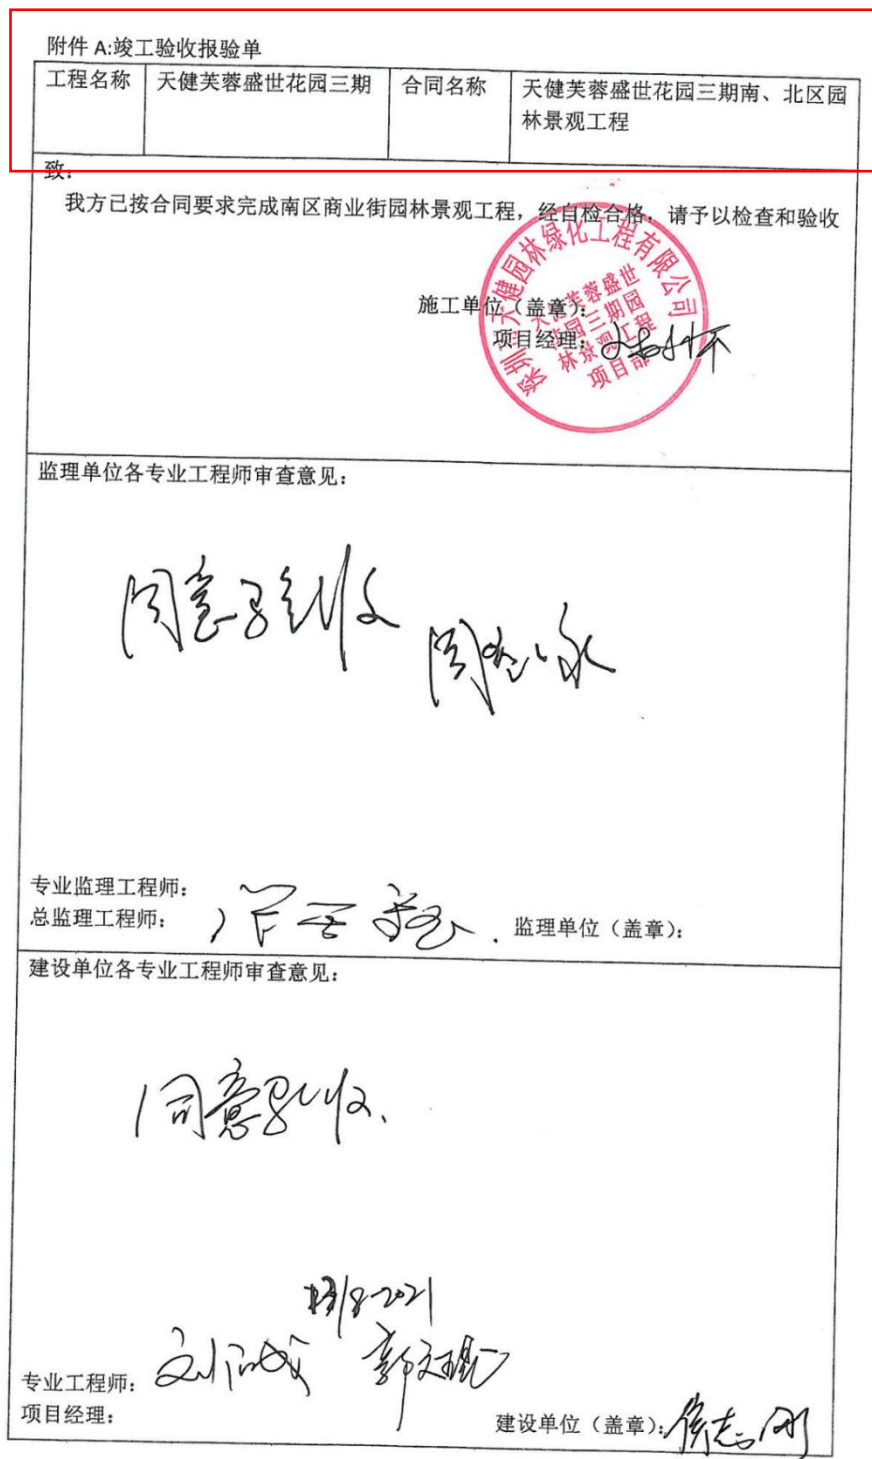 附件 A:竣工验收报验单
工程名称 天健芙蓉盛世花园三期 合同名称 天健芙蓉盛世花园三期南、北区园
林景观工程
致:
我方已按合同要求完成南区商业街园林景观工程，经自检合格，请予以检查和验收
深圳 天健园林绿化工程有限公司
天健芙蓉盛世
花园三期园
林景观工程
项目部
施工单位（盖章）:
项目经理:
监理单位各专业工程师审查意见:
同意验收
专业监理工程师:
总监理工程师: 监理单位（盖章）:
建设单位各专业工程师审查意见:
同意验收.
2021
专业工程师:
项目经理:
建设单位（盖章）: 侯志刚